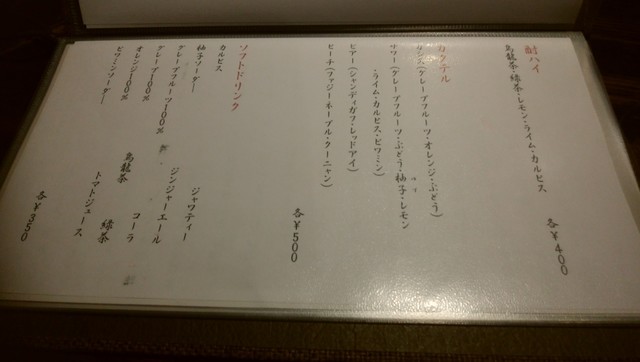 酎ハイ
烏龍茶・緑茶・レモン・ライム・カルピス
各¥400
カクテル
(グレープフルーツ・オレンジ・ぶどう)
サワー(グレープフルーツ・ぶどう・柚子・レモン
・ライム・カルピス・ビタミン)
ビアー(シャンディガフ・レッドアイ)
ピーチ(ファジーネーブル・クーニャン)
各¥500
ソフトドリンク
カルピス
柚子ソーダー
グレープフルーツ100%
グレープ100%
オレンジ100%
ビタミンソーダー
ジャワティー
ジンジャーエール
コーラ
烏龍茶
緑茶
トマトジュース
各¥350